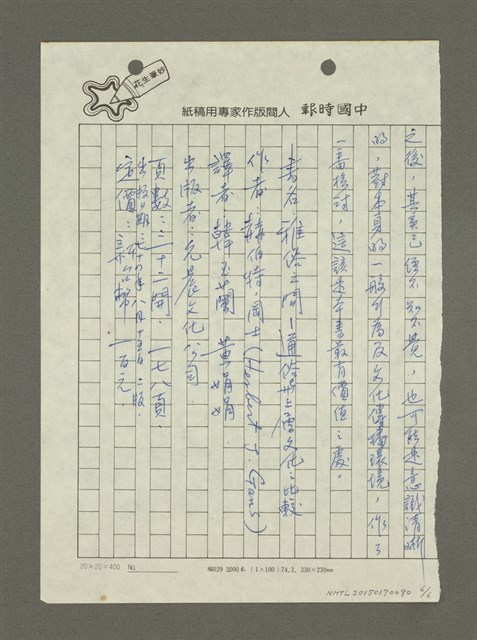 妙筆生花
中國時報 人間版作家專用稿紙
之後，其實已經不知不覺，也可能是意識清晰
的，對本身的一般行為及文化傳播環境，作了
一番檢討，這該是本書最有價值之處。
書名：雅俗之間—通俗與上層文化之比較
作者：赫伯特．岡士（Herbert J. Gans）
譯者：韓玉蘭 黃絹絹
出版者：允晨文化公司
頁數：三十二開．一七八頁．
出版日期：七十四年八月十五日二版．
定價：新台幣一百元
20×20=400 No.
稿029 2000本 (1×100) 74.3, 330×238mm
NMTL20150170090 6/6